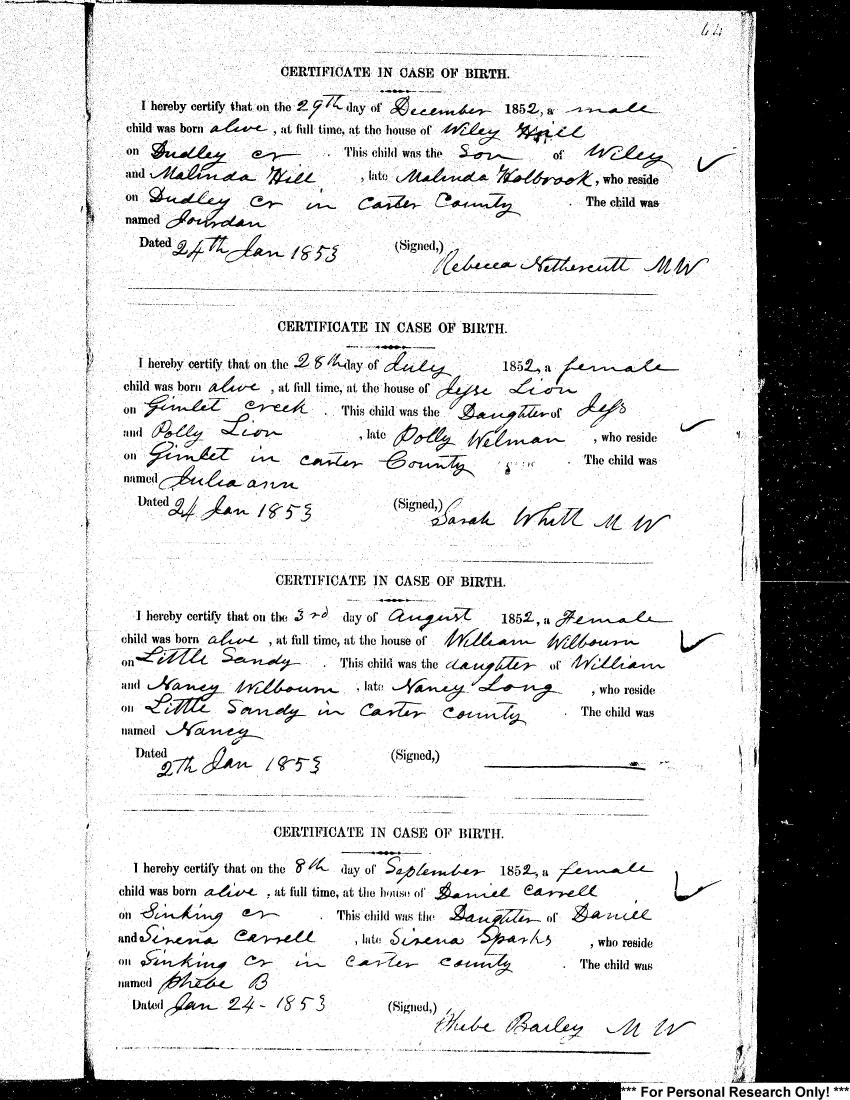 64
CERTIFICATE IN CASE OF BIRTH.
I hereby certify that on the 29th day of December 1852, a male
child was born alive, at full time, at the house of Wiley Hill
on Dudley cr. This child was the Son of Wiley
and Malinda Hill, late Malinda Holbrook, who reside
on Dudley Cr in Carter County. The child was
named Jourdan
Dated 24th Jan 1853 (Signed,)
Rebecca Nethercutt M W
CERTIFICATE IN CASE OF BIRTH.
I hereby certify that on the 28th day of July 1852, a female
child was born alive, at full time, at the house of Jesse Lion
on Gimlet Creek. This child was the Daughter of Jess
and Polly Lion, late Polly Welman, who reside
on Gimlet in carter County. The child was
named Juliaann
Dated 24 Jan 1853 (Signed,)
Sarah Whitt M W
CERTIFICATE IN CASE OF BIRTH.
I hereby certify that on the 3rd day of August 1852, a Female
child was born alive, at full time, at the house of William Wilbourn
on Little Sandy. This child was the daughter of William
and Nancy Wilbourn, late Nancy Long, who reside
on Little Sandy in Carter county. The child was
named Nancy
Dated 2th Jan 1853 (Signed,)
CERTIFICATE IN CASE OF BIRTH.
I hereby certify that on the 8th day of September 1852, a female
child was born alive, at full time, at the house of Daniel Carrell
on Sinking cr. This child was the Daughter of Daniell
and Sirena Carrell, late Sirena Sparks, who reside
on Sinking Cr in carter county. The child was
named Phebe B
Dated Jan 24-1853 (Signed,)
Phebe Barley M W
*** For Personal Research Only! ***